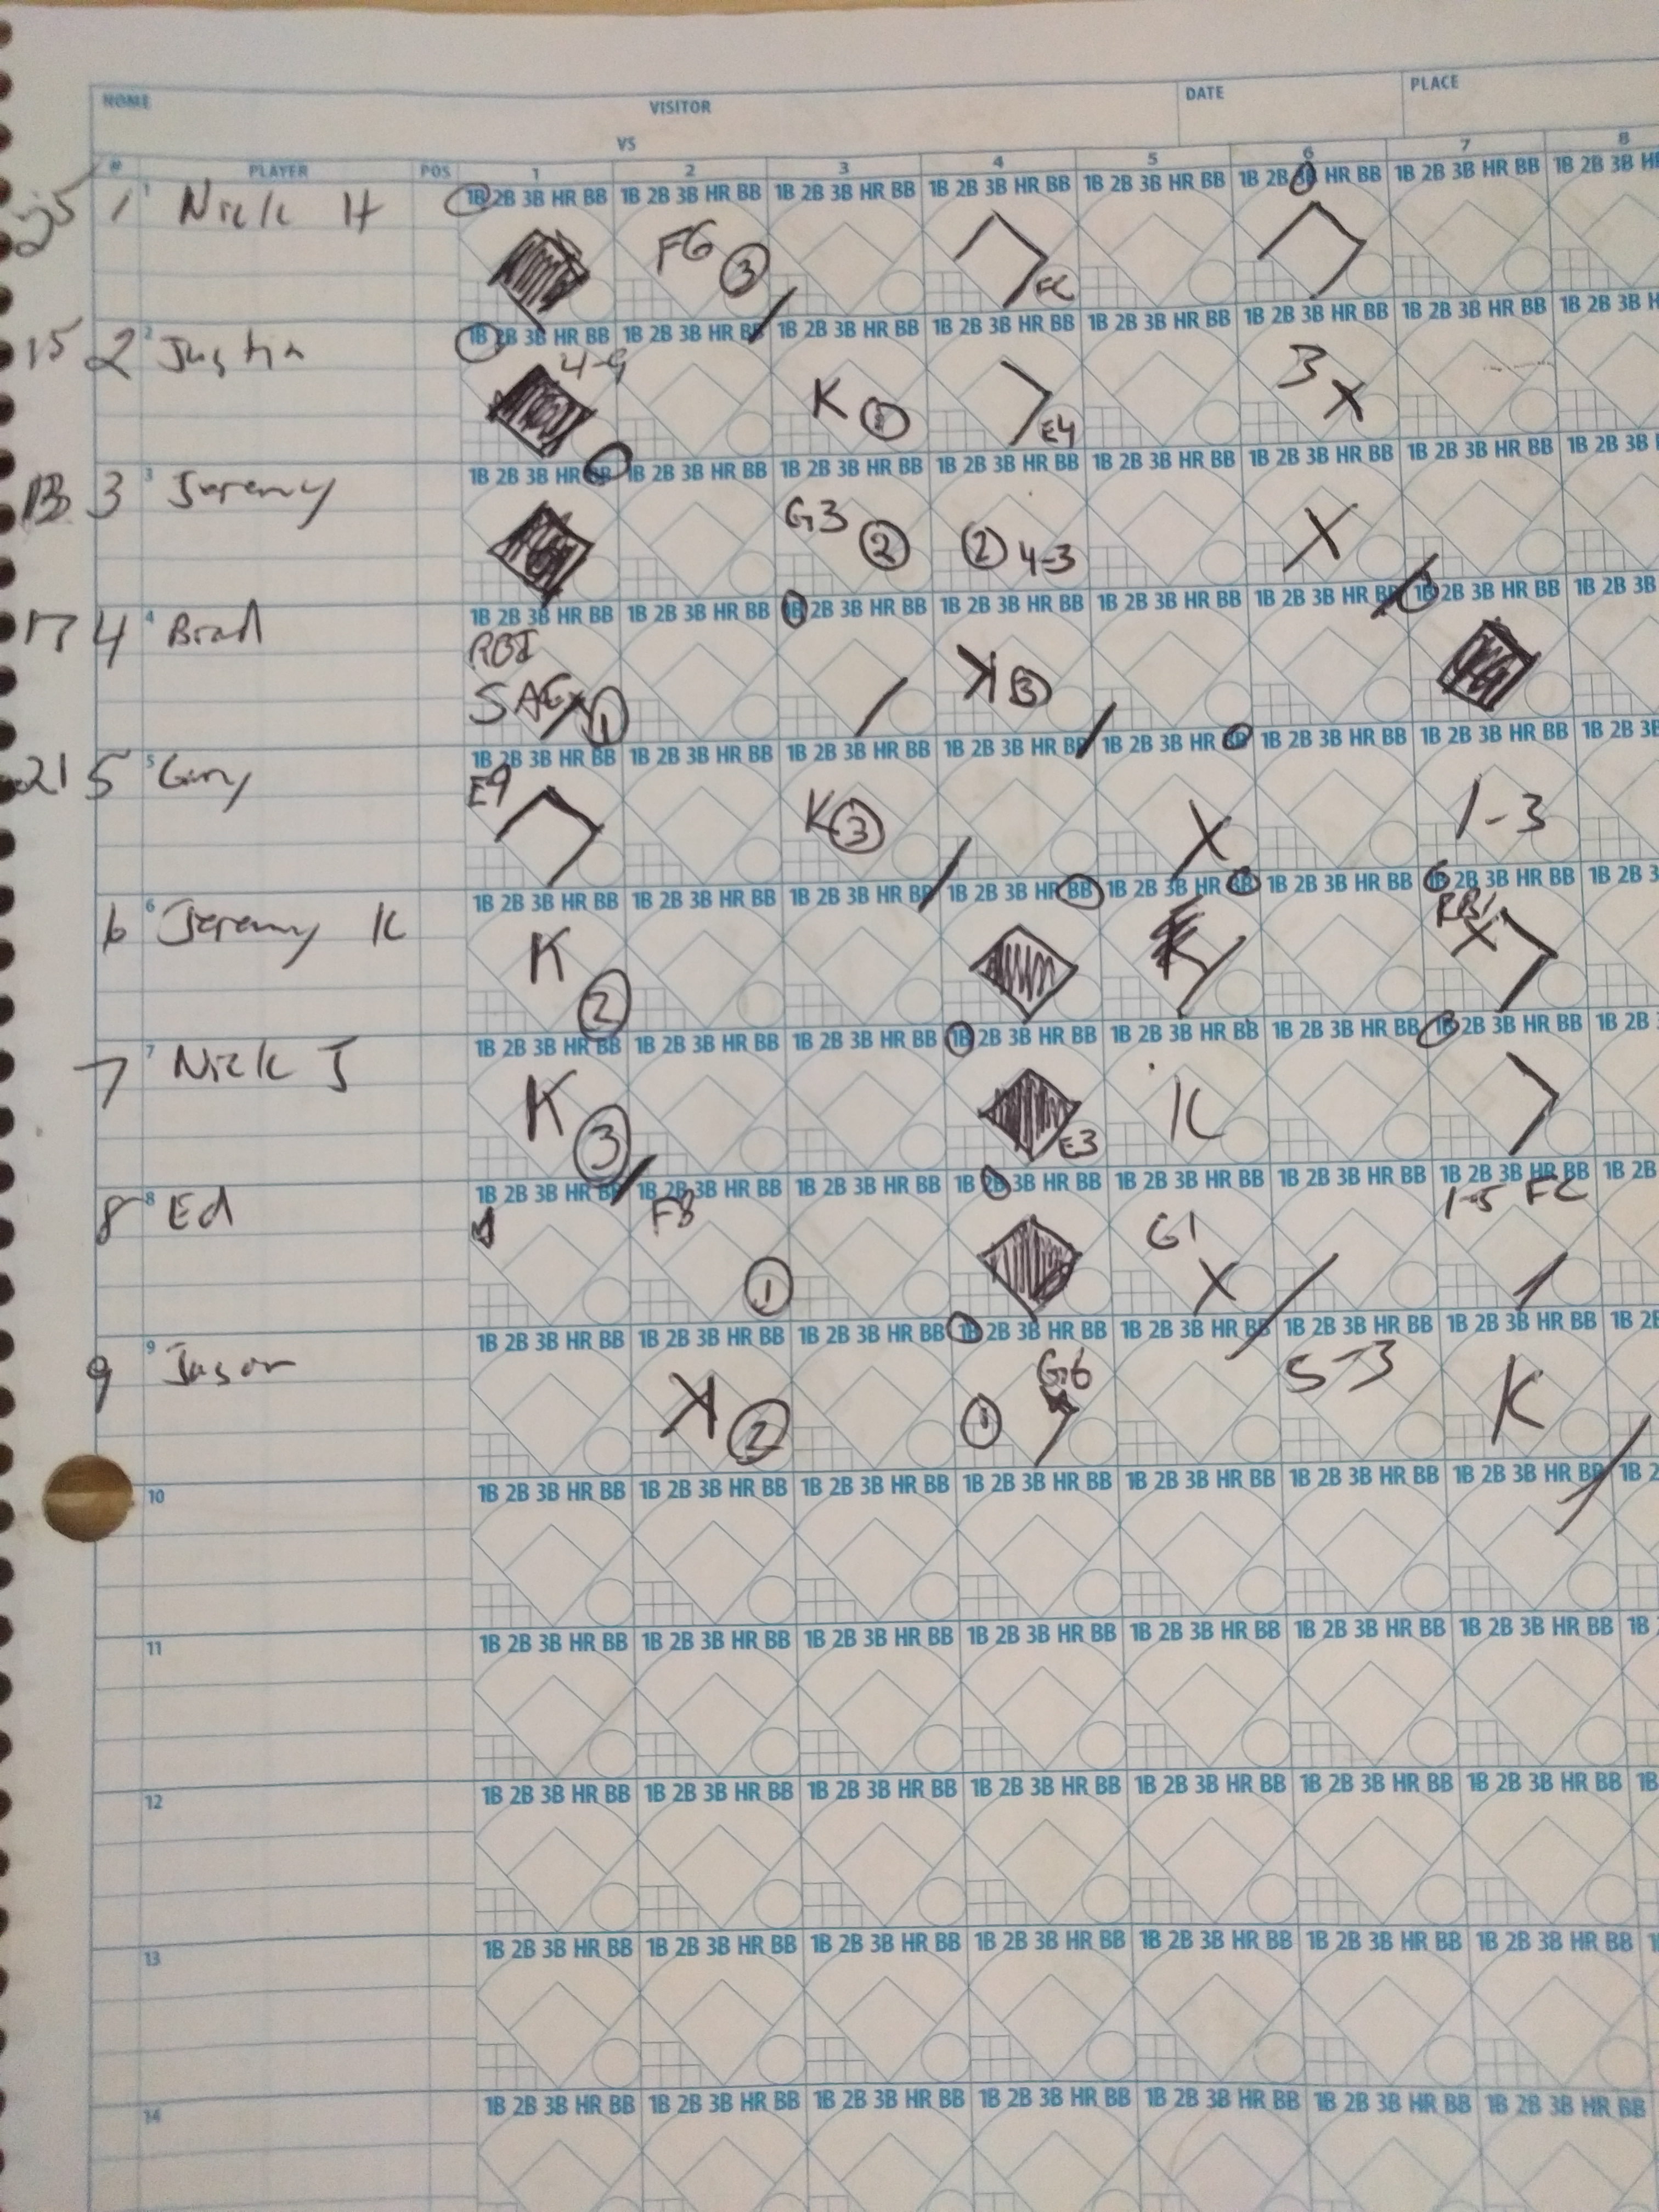 HOME VISITOR DATE PLACE
VS
# PLAYER POS 1 2 3 4 5 6 7 8
1B 2B 3B HR BB 1B 2B 3B HR BB 1B 2B 3B HR BB 1B 2B 3B HR BB 1B 2B 3B HR BB 1B 2B 3B HR BB 1B 2B 3B HR BB 1B 2B 3B
25 1 1 Nick H F6 3 FC
1B 2B 3B HR BB 1B 2B 3B HR BB 1B 2B 3B HR BB 1B 2B 3B HR BB 1B 2B 3B HR BB 1B 2B 3B HR BB 1B 2B 3B HR BB 1B 2B 3B
15 2 2 Justin 4-9 K 1 E4 3 X
1B 2B 3B HR BB 1B 2B 3B HR BB 1B 2B 3B HR BB 1B 2B 3B HR BB 1B 2B 3B HR BB 1B 2B 3B HR BB 1B 2B 3B HR BB 1B 2B 3B
13 3 3 Jeremy G3 2 2 4-3 X
1B 2B 3B HR BB 1B 2B 3B HR BB 1B 2B 3B HR BB 1B 2B 3B HR BB 1B 2B 3B HR BB 1B 2B 3B HR BB 1B 2B 3B HR BB 1B 2B 3B
17 4 4 Brad RBI SAC 1 K 3
1B 2B 3B HR BB 1B 2B 3B HR BB 1B 2B 3B HR BB 1B 2B 3B HR BB 1B 2B 3B HR BB 1B 2B 3B HR BB 1B 2B 3B HR BB 1B 2B 3B
21 5 5 Gary E9 K 3 X 1-3
1B 2B 3B HR BB 1B 2B 3B HR BB 1B 2B 3B HR BB 1B 2B 3B HR BB 1B 2B 3B HR BB 1B 2B 3B HR BB 1B 2B 3B HR BB 1B 2B 3
6 6 Jeremy K K 2 RBI X
1B 2B 3B HR BB 1B 2B 3B HR BB 1B 2B 3B HR BB 1B 2B 3B HR BB 1B 2B 3B HR BB 1B 2B 3B HR BB 1B 2B 3B HR BB 1B 2B
7 7 Nick J K 3 E3 K
1B 2B 3B HR BB 1B 2B 3B HR BB 1B 2B 3B HR BB 1B 2B 3B HR BB 1B 2B 3B HR BB 1B 2B 3B HR BB 1B 2B 3B HR BB 1B 2B
8 8 Ed F8 1 G1 X 1-5 FC
1B 2B 3B HR BB 1B 2B 3B HR BB 1B 2B 3B HR BB 1B 2B 3B HR BB 1B 2B 3B HR BB 1B 2B 3B HR BB 1B 2B 3B HR BB 1B 2B
9 9 Jason K 2 1 G6 5-3 K
1B 2B 3B HR BB 1B 2B 3B HR BB 1B 2B 3B HR BB 1B 2B 3B HR BB 1B 2B 3B HR BB 1B 2B 3B HR BB 1B 2B 3B HR BB 1B 2
10
1B 2B 3B HR BB 1B 2B 3B HR BB 1B 2B 3B HR BB 1B 2B 3B HR BB 1B 2B 3B HR BB 1B 2B 3B HR BB 1B 2B 3B HR BB 1B
11
1B 2B 3B HR BB 1B 2B 3B HR BB 1B 2B 3B HR BB 1B 2B 3B HR BB 1B 2B 3B HR BB 1B 2B 3B HR BB 1B 2B 3B HR BB 1B
12
1B 2B 3B HR BB 1B 2B 3B HR BB 1B 2B 3B HR BB 1B 2B 3B HR BB 1B 2B 3B HR BB 1B 2B 3B HR BB 1B 2B 3B HR BB
13
1B 2B 3B HR BB 1B 2B 3B HR BB 1B 2B 3B HR BB 1B 2B 3B HR BB 1B 2B 3B HR BB 1B 2B 3B HR BB 1B 2B 3B HR BB
14